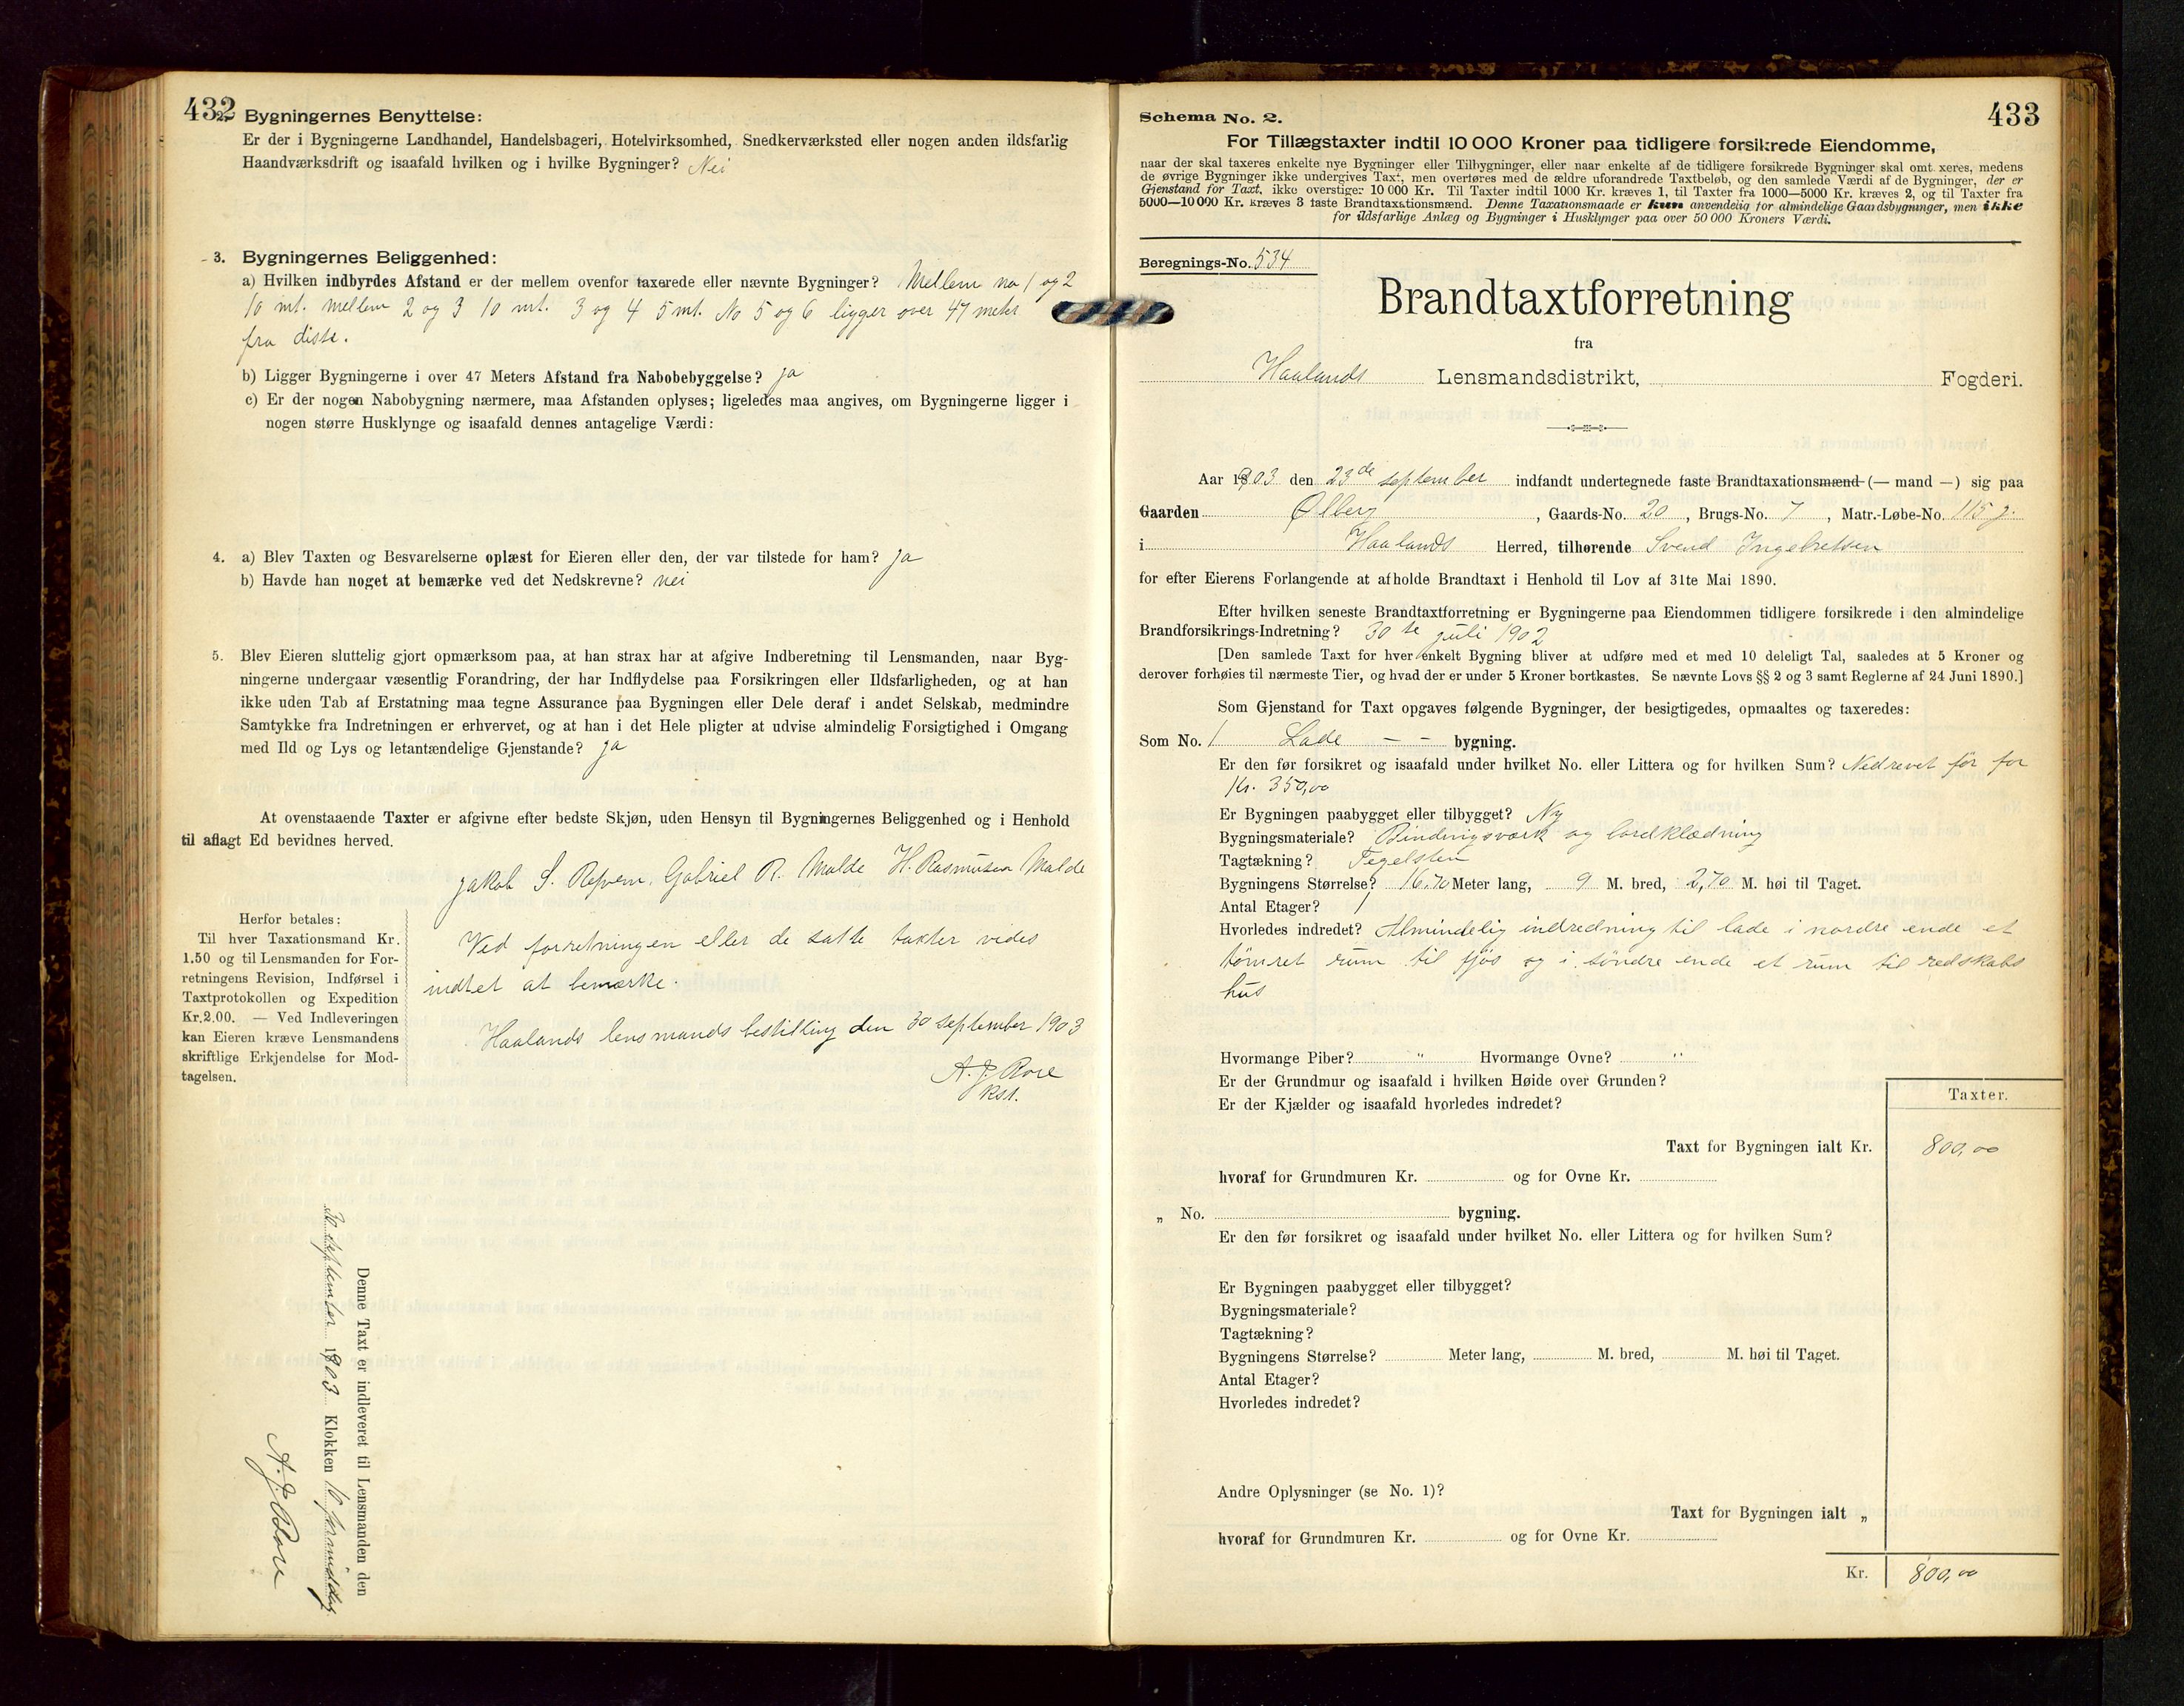 432
2. Bygningernes Benyttelse:
Er der i Bygningerne Landhandel, Handelsbageri, Hotelvirksomhed, Snedkerværksted eller nogen anden ildsfarlig
Haandværksdrift og isaafald hvilken og i hvilke Bygninger? Nei
3. Bygningernes Beliggenhed:
a) Hvilken indbyrdes Afstand er der mellem ovenfor taxerede eller nævnte Bygninger? Mellem no 1 og 2
10 mt. mellem 2 og 3 10 mt. 3 og 4 5 mt. No 5 og 6 ligger over 47 meter
fra disse.
b) Ligger Bygningerne i over 47 Meters Afstand fra Nabobebyggelse? ja
c) Er der nogen Nabobygning nærmere, maa Afstanden oplyses; ligeledes maa angives, om Bygningerne ligger i
nogen større Husklynge og isaafald dennes antagelige Værdi:
4. a) Blev Taxten og Besvarelserne oplæst for Eieren eller den, der var tilstede for ham? ja
b) Havde han noget at bemærke ved det Nedskrevne? nei
5. Blev Eieren sluttelig gjort opmærksom paa, at han strax har at afgive Indberetning til Lensmanden, naar Byg-
ningerne undergaar væsentlig Forandring, der har Indflydelse paa Forsikringen eller Ildsfarligheden, og at han
ikke uden Tab af Erstatning maa tegne Assurance paa Bygningen eller Dele deraf i andet Selskab, medmindre
Samtykke fra Indretningen er erhvervet, og at han i det Hele pligter at udvise almindelig Forsigtighed i Omgang
med Ild og Lys og letantændelige Gjenstande? ja
At ovenstaaende Taxter er afgivne efter bedste Skjøn, uden Hensyn til Bygningernes Beliggenhed og i Henhold
til aflagt Ed bevidnes herved.
Jakob S. Gabriel R. Malde H. Rasmusen Malde
Herfor betales:
Til hver Taxationsmand Kr.
1.50 og til Lensmanden for For-
retningens Revision, Indførsel i
Taxtprotokollen og Expedition
Kr.2.00. — Ved Indleveringen
kan Eieren kræve Lensmandens
skriftlige Erkjendelse for Mod-
tagelsen.
Ved forretningen eller de satte takter vides
indtet at bemærke.
Haalands lensmands bestilling den 30 september 1903
A. J. Bore
kst.
Denne Taxt er indleveret til Lensmanden den
30 september 1903 Klokken 10 formiddag
A. J. Bore
433
Schema No. 2.
For Tillægstaxter indtil 10 000 Kroner paa tidligere forsikrede Eiendomme,
naar der skal taxeres enkelte nye Bygninger eller Tilbygninger, eller naar enkelte af de tidligere forsikrede Bygninger skal omt xeres, medens
de øvrige Bygninger ikke undergives Taxt, men overføres med de ældre uforandrede Taxtbeløb, og den samlede Værdi af de Bygninger, der er
Gjenstand for Taxt, ikke overstiger 10 000 Kr. Til Taxter indtil 1000 Kr. kræves 1, til Taxter fra 1000—5000 Kr. kræves 2, og til Taxter fra
5000—10 000 Kr. kræves 3 faste Brandtaxationsmænd. Denne Taxationsmaade er kun anvendelig for almindelige Gaardsbygninger, men ikke
for ildsfarlige Anlæg og Bygninger i Husklynger paa over 50 000 Kroners Værdi.
Beregnings-No. 534
Brandtaxtforretning
fra
Haalands Lensmandsdistrikt, Fogderi.
Aar 1903 den 23de september indfandt undertegnede faste Brandtaxationsmænd (— mand —) sig paa
Gaarden Ølberg, Gaards-No. 20, Brugs-No. 7, Matr.-Løbe-No. 115 g.
i Haalands Herred, tilhørende Svend Ingebretsen
for efter Eierens Forlangende at afholde Brandtaxt i Henhold til Lov af 31te Mai 1890.
Efter hvilken seneste Brandtaxtforretning er Bygningerne paa Eiendommen tidligere forsikrede i den almindelige
Brandforsikrings-Indretning? 30te juli 1902
[Den samlede Taxt for hver enkelt Bygning bliver at udføre med et med 10 deleligt Tal, saaledes at 5 Kroner og
derover forhøies til nærmeste Tier, og hvad der er under 5 Kroner bortkastes. Se nævnte Lovs §§ 2 og 3 samt Reglerne af 24 Juni 1890.]
Som Gjenstand for Taxt opgaves følgende Bygninger, der besigtigedes, opmaaltes og taxeredes:
Som No. 1 Lade — — bygning.
Er den før forsikret og isaafald under hvilket No. eller Littera og for hvilken Sum? Nedrevet för for
Kr. 350,00
Er Bygningen paabygget eller tilbygget? Ny
Bygningsmateriale? Bindingsværk og bordklædning
Tagtækning? Tegelsten
Bygningens Størrelse? 16,70 Meter lang, 9 M. bred, 2,70 M. høi til Taget.
Antal Etager? 1
Hvorledes indredet? Almindelig indredning til lade i nordre ende et
tömret rum til fjös og i söndre ende et rum til redskabs
hus
Hvormange Piber? " Hvormange Ovne? "
Er der Grundmur og isaafald i hvilken Høide over Grunden?
Er der Kjælder og isaafald hvorledes indredet?
Taxter.
Taxt for Bygningen ialt Kr. 800,00
hvoraf for Grundmuren Kr. og for Ovne Kr.
„ No. bygning.
Er den før forsikret og isaafald under hvilket No. eller Littera og for hvilken Sum?
Er Bygningen paabygget eller tilbygget?
Bygningsmateriale?
Tagtækning?
Bygningens Størrelse? Meter lang, M. bred, M. høi til Taget.
Antal Etager?
Hvorledes indredet?
Andre Oplysninger (se No. 1)?
Taxt for Bygningen ialt „
hvoraf for Grundmuren Kr. og for Ovne Kr.
Kr. 800,00